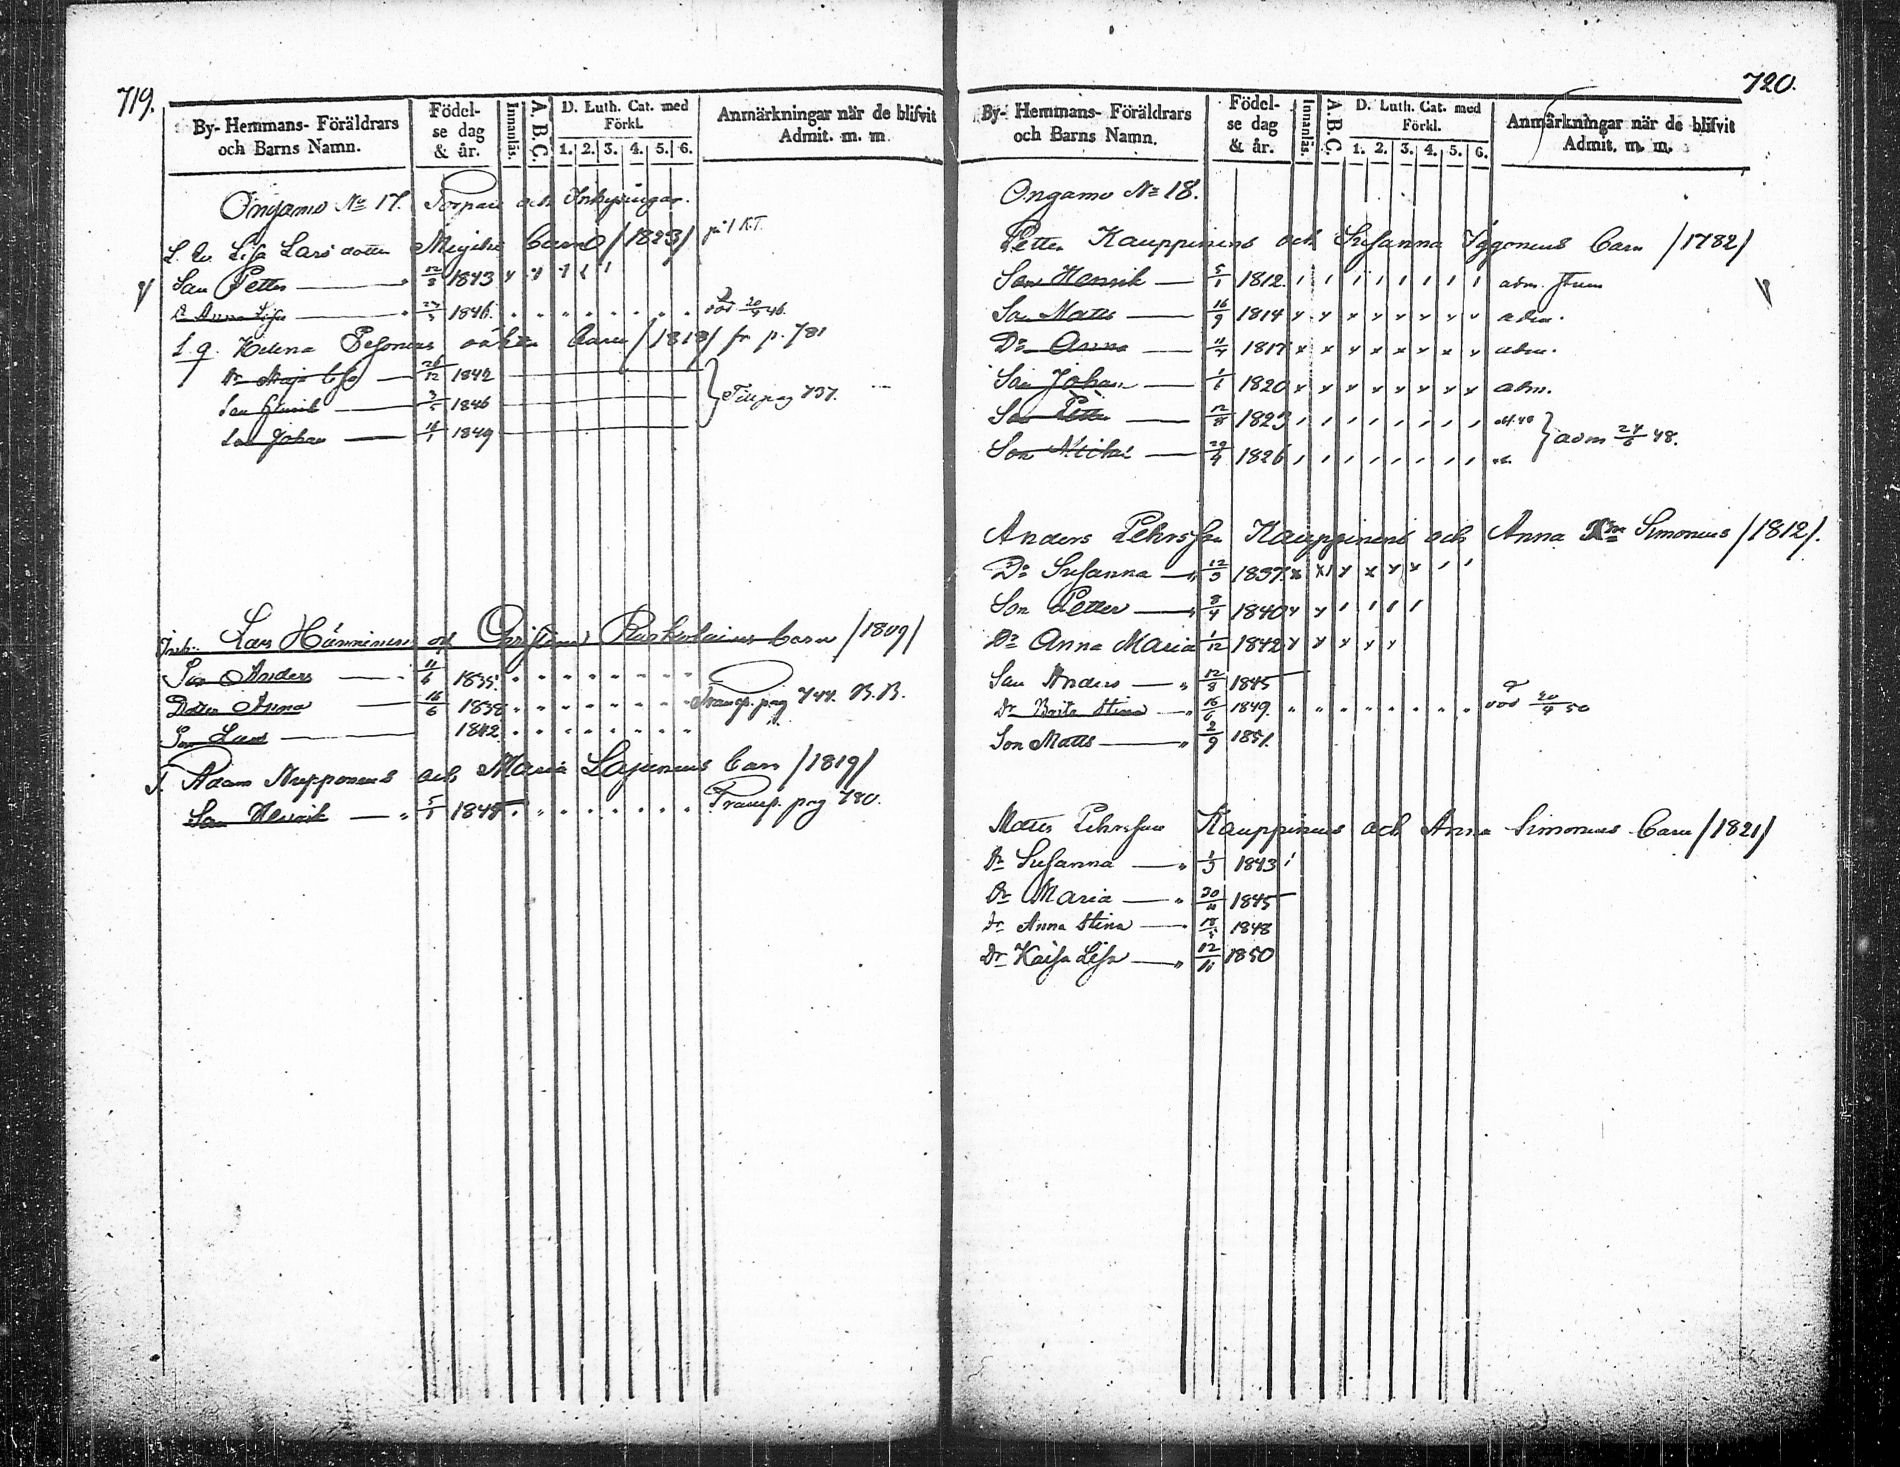 719.
By- Hemmans- Föräldrars och Barns Namn.
Födel-se dag & år.
Innanläs.
A. B. C.
D. Luth. Cat. med Förkl.
1. 2. 3. 4. 5. 6.
Anmärkningar när de blifvit Admit. m. m.
Ongamo No 17. Torpare och Inhysingar.
Lisa Larsdotter Barn /1823/
Son Petter 12/2 1843
Dr Anna Lisa 1846. död 46.
Helena Pesonens Barn /1818/ fr p. 781
Dr Maja Lisa 1842
Son Henrik 3/5 1846 Till pag 737.
Son Johan 1849
Inh. Lars Hänninens och Christina Barn /1809/
Son Anders 11/6 1835.
Dotter Anna 16/6 1838 Transp. pag 744.
Son Lars 1842.
T. Adam Nupponens och Maria Barn /1819/
Son Henrik 1845 Transp. pag 780.
720.
By- Hemmans- Föräldrars och Barns Namn.
Födel-se dag & år.
Innanläs.
A. B. C.
D. Luth. Cat. med Förkl.
1. 2. 3. 4. 5. 6.
Anmärkningar när de blifvit Admit. m. m.
Ongamo No 18.
Petter Kauppinens och Susanna Iggonens Barn /1782/
Son Henrik 5/1 1812. adm.
Son Matts 16/9 1814 adm.
Dr Anna 11/4 1817 adm.
Son Johan 1/6 1820 adm.
Son Petter 12/8 1823
Son Michel 29/4 1826 adm 24/6 48.
Anders Pehrsson Kauppinens och Anna Simonens /1812/.
Dr Susanna 12/3 1837.
Son Petter 8/4 1840
Dr Anna Maria 1/12 1842
Son Anders 12/8 1845
Dr Brita Stina 16/6 1849. död 50
Son Matts 2/9 1851.
Matts Pehrsson Kauppinens och Anna Simonens Barn /1821/
Dr Susanna 1/3 1843
Dr Maria 1845
Dr Anna Stina 1848
Dr Kaisa Lisa 12/11 1850